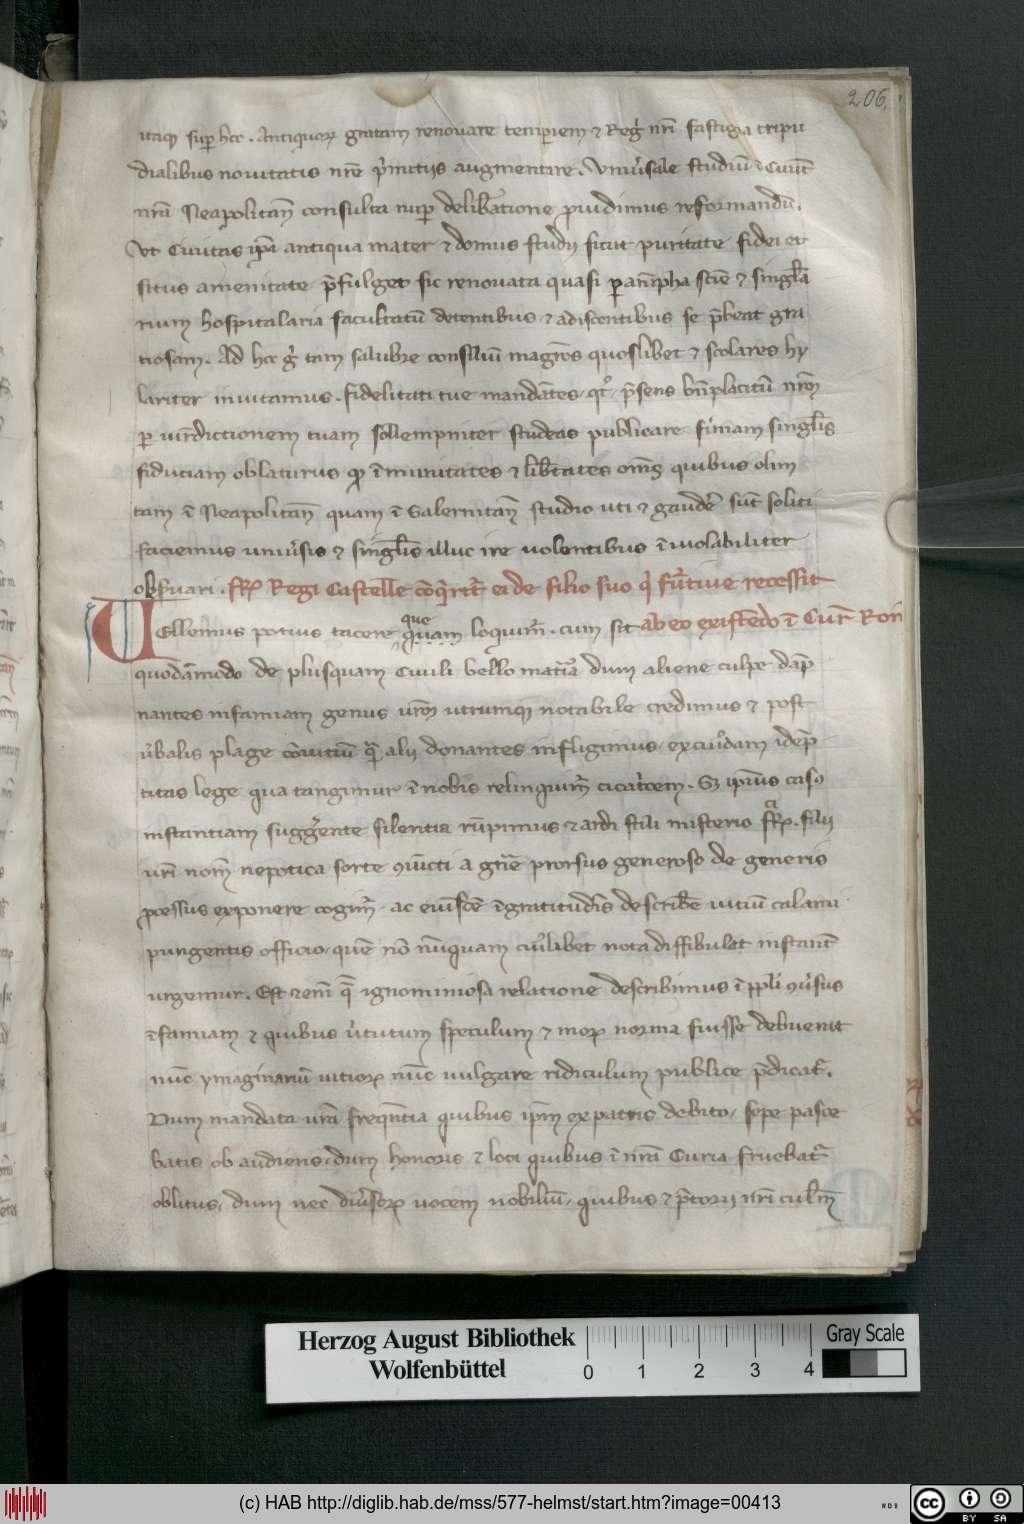 206.
itaq; sup hec. Antiquorꝝ gratam renouare temperiem ⁊ Reg' nr̄i fastigia tripu
dialibus nouitatis nr̄e p'mitijs augmentare. Vniu'sale studiū ī Ciuit̄
nr̄a Neapolitan̄ consulta nup delib̄atione puidimus reformandū.
Vt Ciuitas ip̄a antiqua mater ⁊ domus studij sicut puritate fidei et
situs amenitate p̄fulget sic renouata quasi
⁊ singl̄a
rium hospitalaria facultatū docentibus ⁊ adiscentibus se p̄beat gra
tiosam. Ad hec g' tam salubre consiliū magr̄os quoslibet ⁊ scolares hy
lariter inuitamus. fidelitati tue mandātes, qt', p̄sens bn̄placitū nr̄m
p iurisdictionem tuam sollempniter studeas publicare firmam singl̄is
fiduciam oblaturus q ī munitates ⁊ lib̄tates om̄s quibus olim
tam ī Neapolitan̄ quam ī Salernitan̄ studio uti ⁊ gaudēr sūt soliti
faciemus uniu'sis ⁊ singl̄is illuc ire uolentibus ī uiolabiliter
obs'uari. ffr. Regi Castelle cōq'rit̄ ei de filio suo q' fūrtiue recessit
ab eo existēdo ī Cur̄ Rom̄
Vellemus potius tacere que quam loquimr̄. cum sit
quodāmodo de plusquam Ciuili bello mat'ia dum aliene culpe dāp
nantes infamiam genus ur̄m utrumq; notabile credimus ⁊ post
u'balis plage conuitiū q alij donantes infligimus, ex cuiusdam idēp
titas lege qua tangimur ī nobis relinquim̄ cicat'cem. Sꝫ ip̄ius casus
instantiam sugg'ente silentia rūpimus ⁊ ardi stili misterio ffr. filij
ur̄i nom̄ nepotica sorte
a gn̄e prorsus generoso de generis
pcessus exponere cogim̄ ac eiusdē īgratitudīs describē uitiū calami
pungentis officio, quē nō nūquam cui'libet nota diffibulat instant̄
urgemur. Est ⁊ enī q̄ ignominiosa relatione describimus ī ppl'i
īfamiam ⁊ quibus u'tutum speculum ⁊ morꝝ norma fuisse debuerat
nūc ymaginariū uitiorꝝ nūc uulgare ridiculum publice p̄dicat'.
Dum mandata ur̄a freq̄ntia quibus ip̄m ex patris debito, sepe pasce
batis ob audiens, dum honoris ⁊ loci quibus ī nr̄a Curia fruebat'
oblitus, dum nec diu'sorꝝ uocem nobiliū, quibus ⁊ p̄torij nr̄i culm̄
Herzog August Bibliothek
Wolfenbüttel
0 1 2 3 4
Gray Scale
(c) HAB http://diglib.hab.de/mss/577-helmst/start.htm?image=00413
WDB
cc BY SA